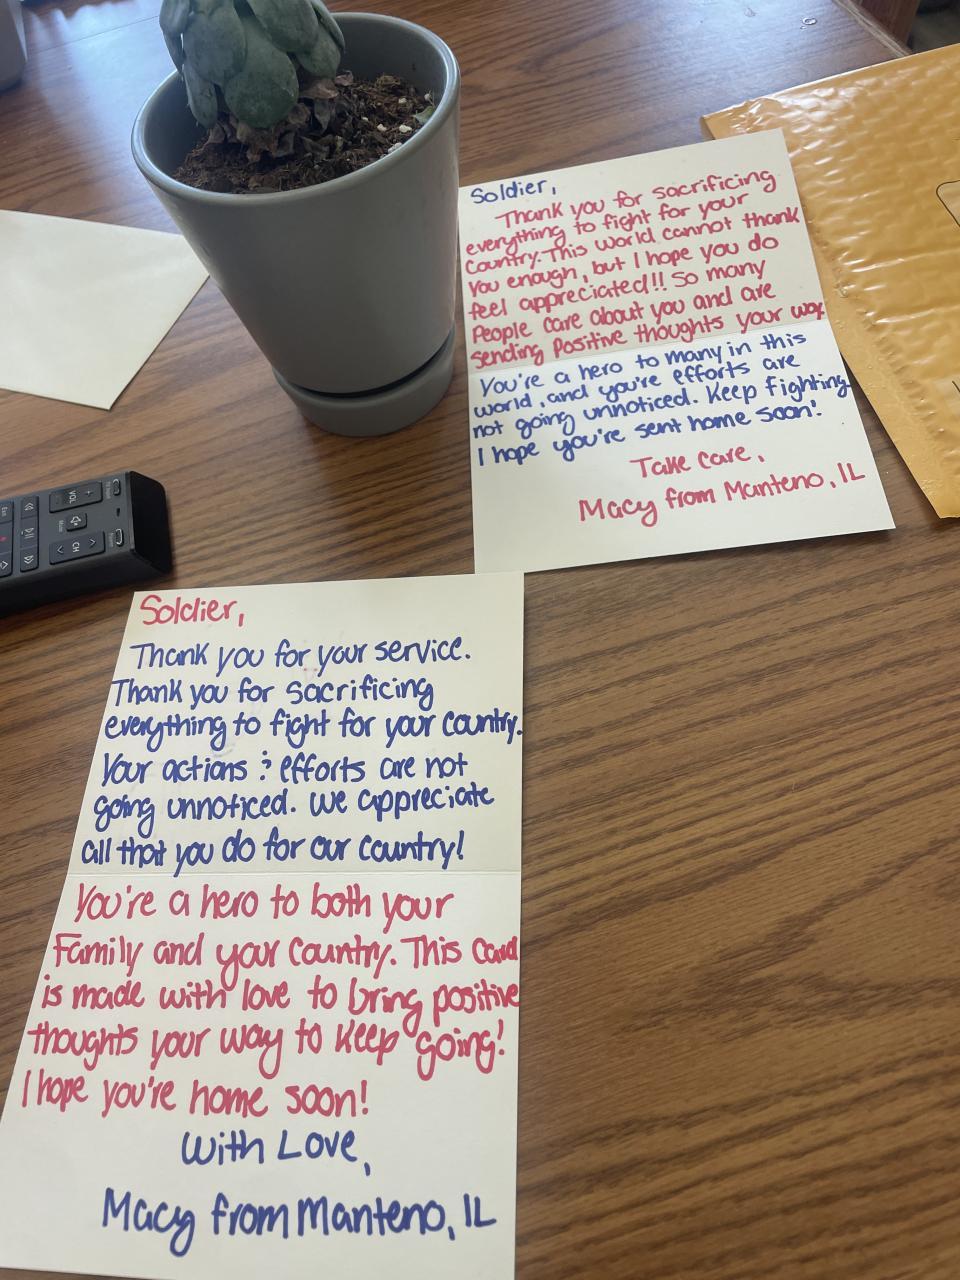 Soldier,
Thank you for sacrificing
everything to fight for your
country. This world cannot thank
you enough, but I hope you do
feel appreciated!! So many
People care about you and are
sending positive thoughts your way
You're a hero to many in this
world, and you're efforts are
not going unnoticed. Keep fighting
I hope you're sent home soon!
Take care,
Macy from Manteno, IL
VOL
Mute
CH
Exit
Soldier,
Thank you for your service.
Thank you for sacrificing
everything to fight for your country.
Your actions & efforts are not
going unnoticed. We appreciate
all that you do for our country!
You're a hero to both your
Family and your country. This card
is made with love to bring positive
thoughts your way to keep going!
I hope you're home soon!
With Love,
Macy from Manteno, IL